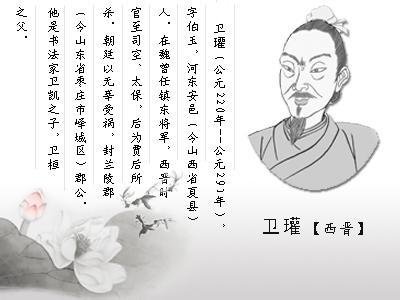 卫瓘（公元220年--公元291年），
字伯玉，河东安邑（今山西省夏县）
人。在魏曾任镇东将军，西晋时
官至司空、太保，后为贾后所
杀。朝廷以无辜受祸，封兰陵郡
（今山东省枣庄市峄城区）郡公。
他是书法家卫凯之子，卫桓
之父。
卫瓘【西晋】